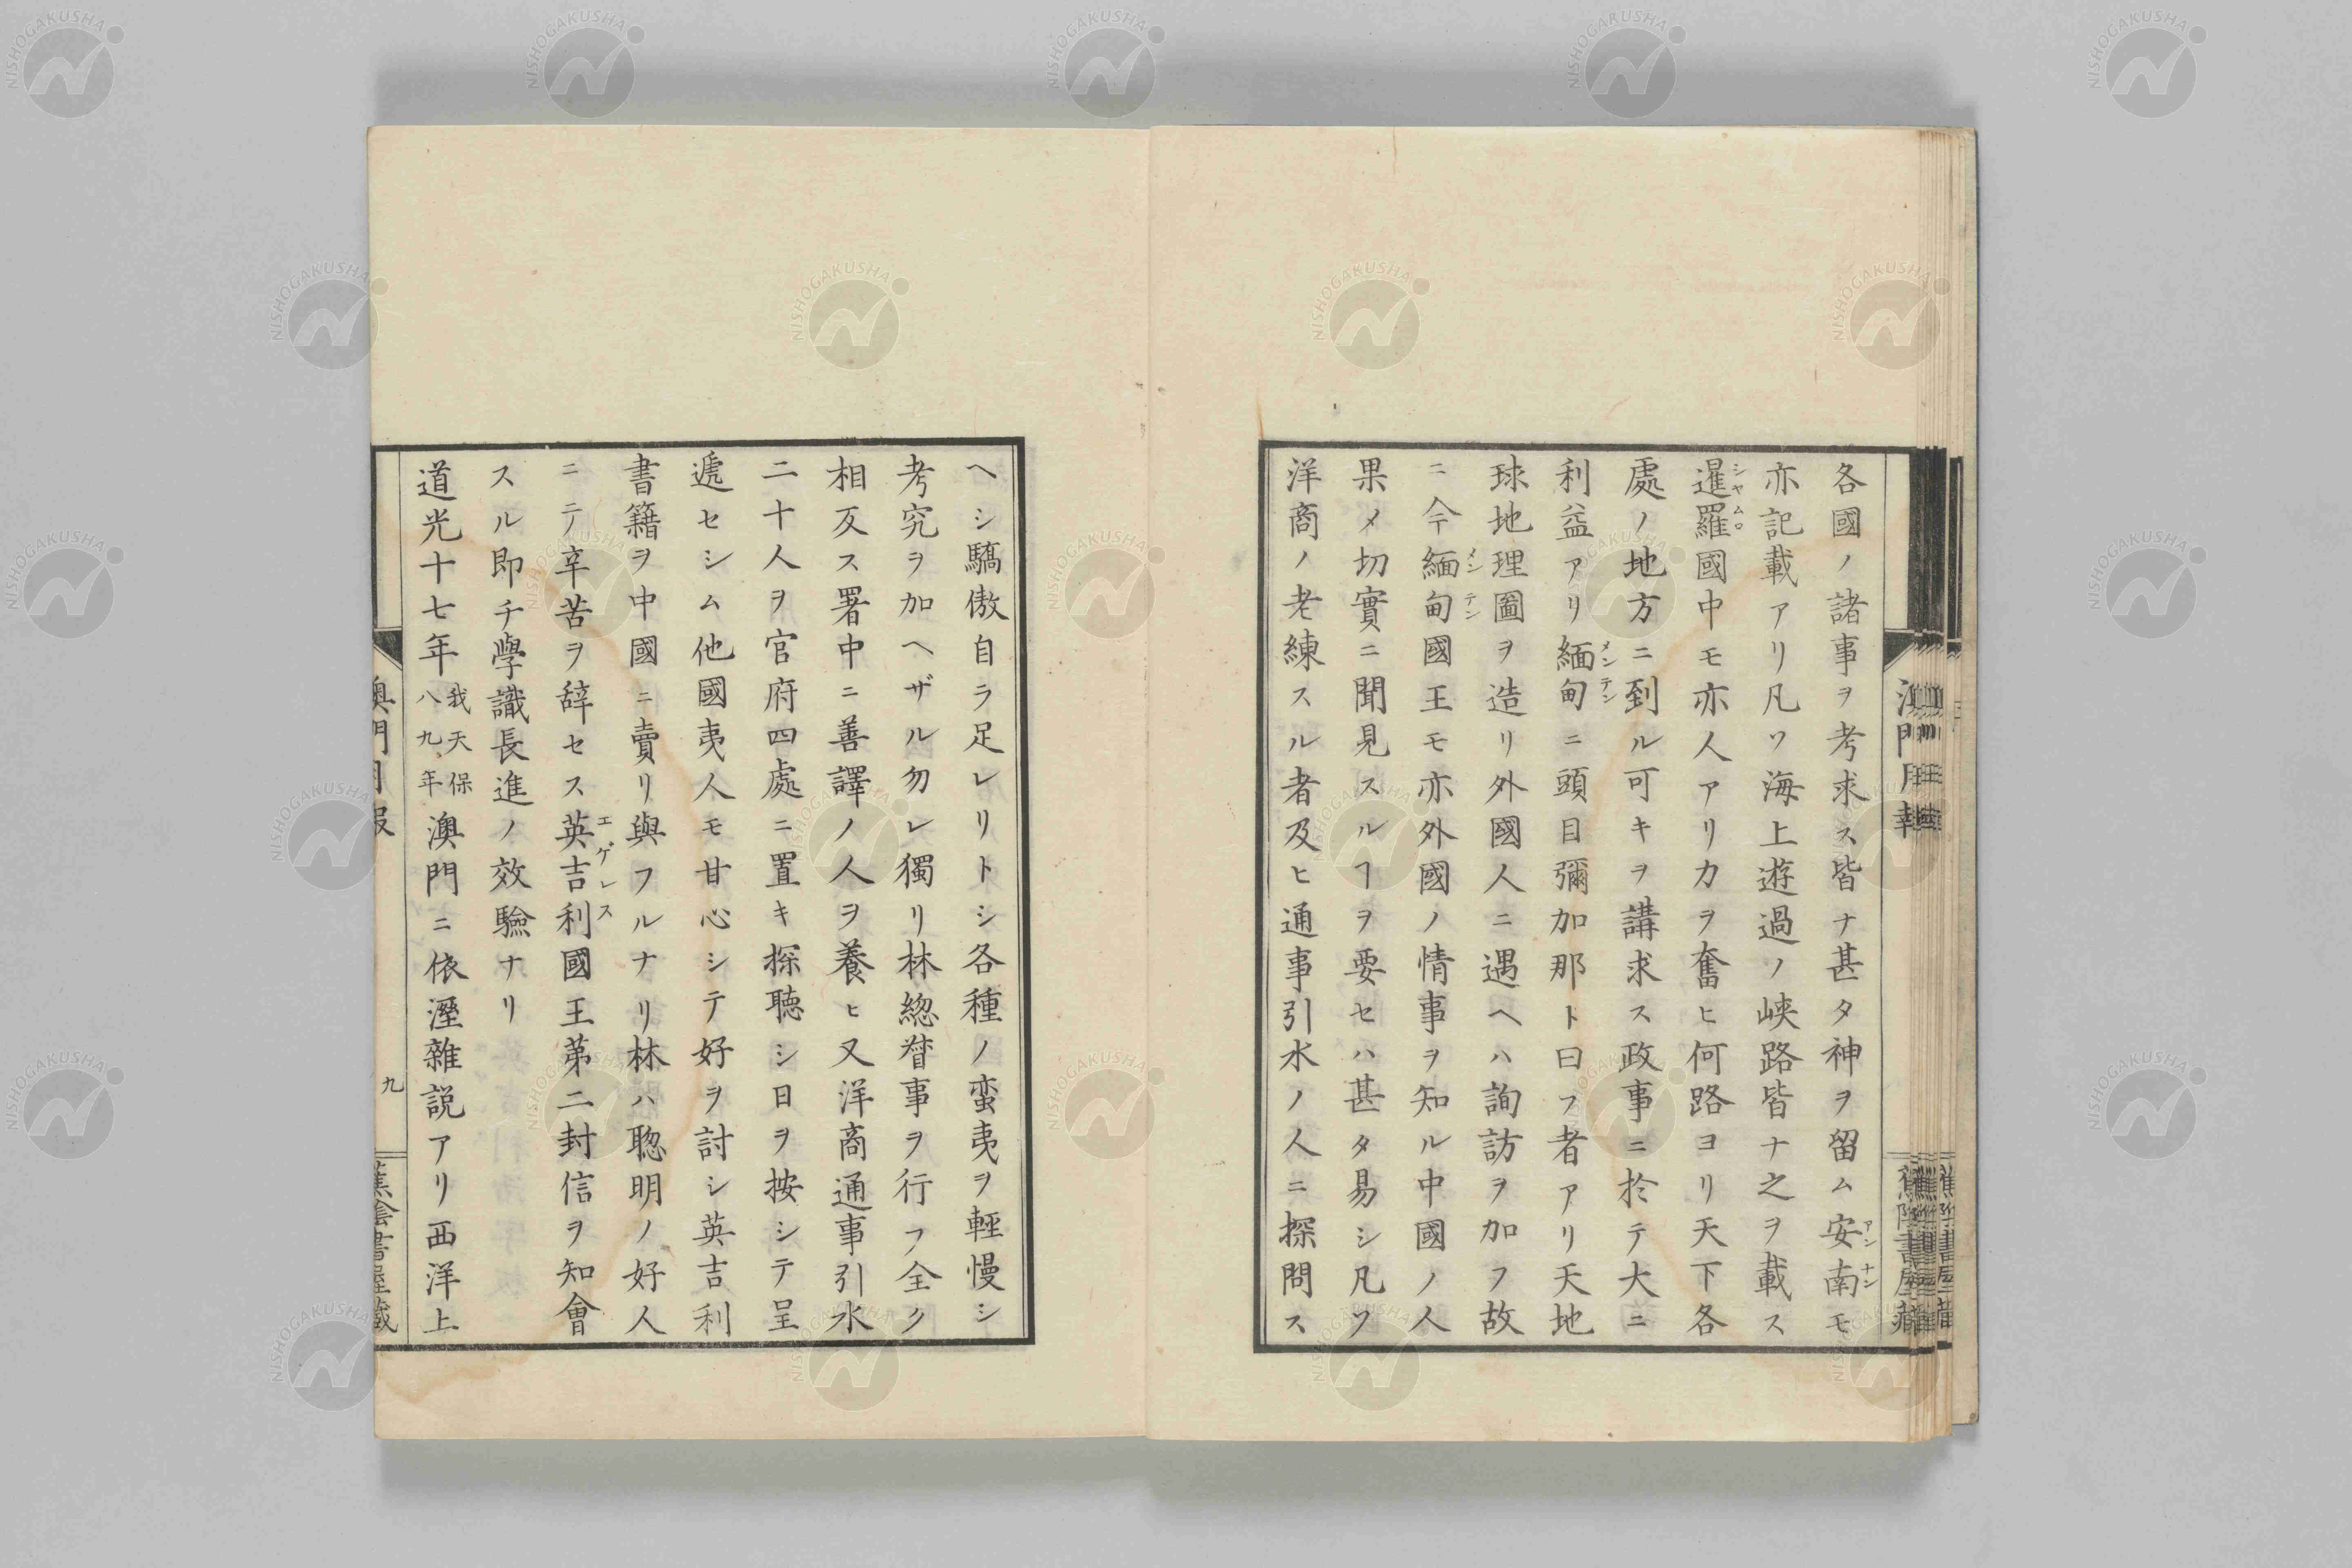 各國ノ諸事ヲ考求ス皆ナ甚タ神ヲ留ム安南モ
アンナン
亦記載アリ凡ソ海上遊過ノ峡路皆ナ之ヲ載ス
暹羅國中モ亦人アリカヲ奮ヒ何路ヨリ天下各
シヤムロ
處ノ地方ニ到ル可キヲ講求ス政事ニ於テ大ニ
利益アリ緬甸ニ頭目彌加那ト曰フ者アリ天地
メンテン
球地理圖ヲ造リ外國人ニ遇ヘハ詢訪ヲ加フ故
ニ今緬甸國王モ亦外國ノ情事ヲ知ル中國ノ人
メンテン
果メ切實ニ聞見スルヿヲ要セハ甚タ易シ凡ソ
洋商ノ老練スル者及ヒ通事引水ノ人ニ探問ス
ヘシ驕傲自ラ足レリトシ各種ノ蛮夷ヲ輕慢シ
考究ヲ加ヘザル勿レ獨リ林総督事ヲ行フ全ク
相反ス署中ニ善譯ノ人ヲ養ヒ又洋商通事引水
二十人ヲ官府四處ニ置キ探聽シ日ヲ按シテ呈
遞セシム他國夷人モ甘心シテ好ヲ討シ英吉利
書籍ヲ中國ニ賣リ與フルナリ林ハ聡明ノ好人
ニテ辛苦ヲ辞セス英吉利國王苐二封信ヲ知會
エゲレス
スル即チ學識長進ノ效驗ナリ
道光十七年我天保八九年澳門ニ依溼雜説アリ西洋上
澳門月報
九
蕉陰書屋藏